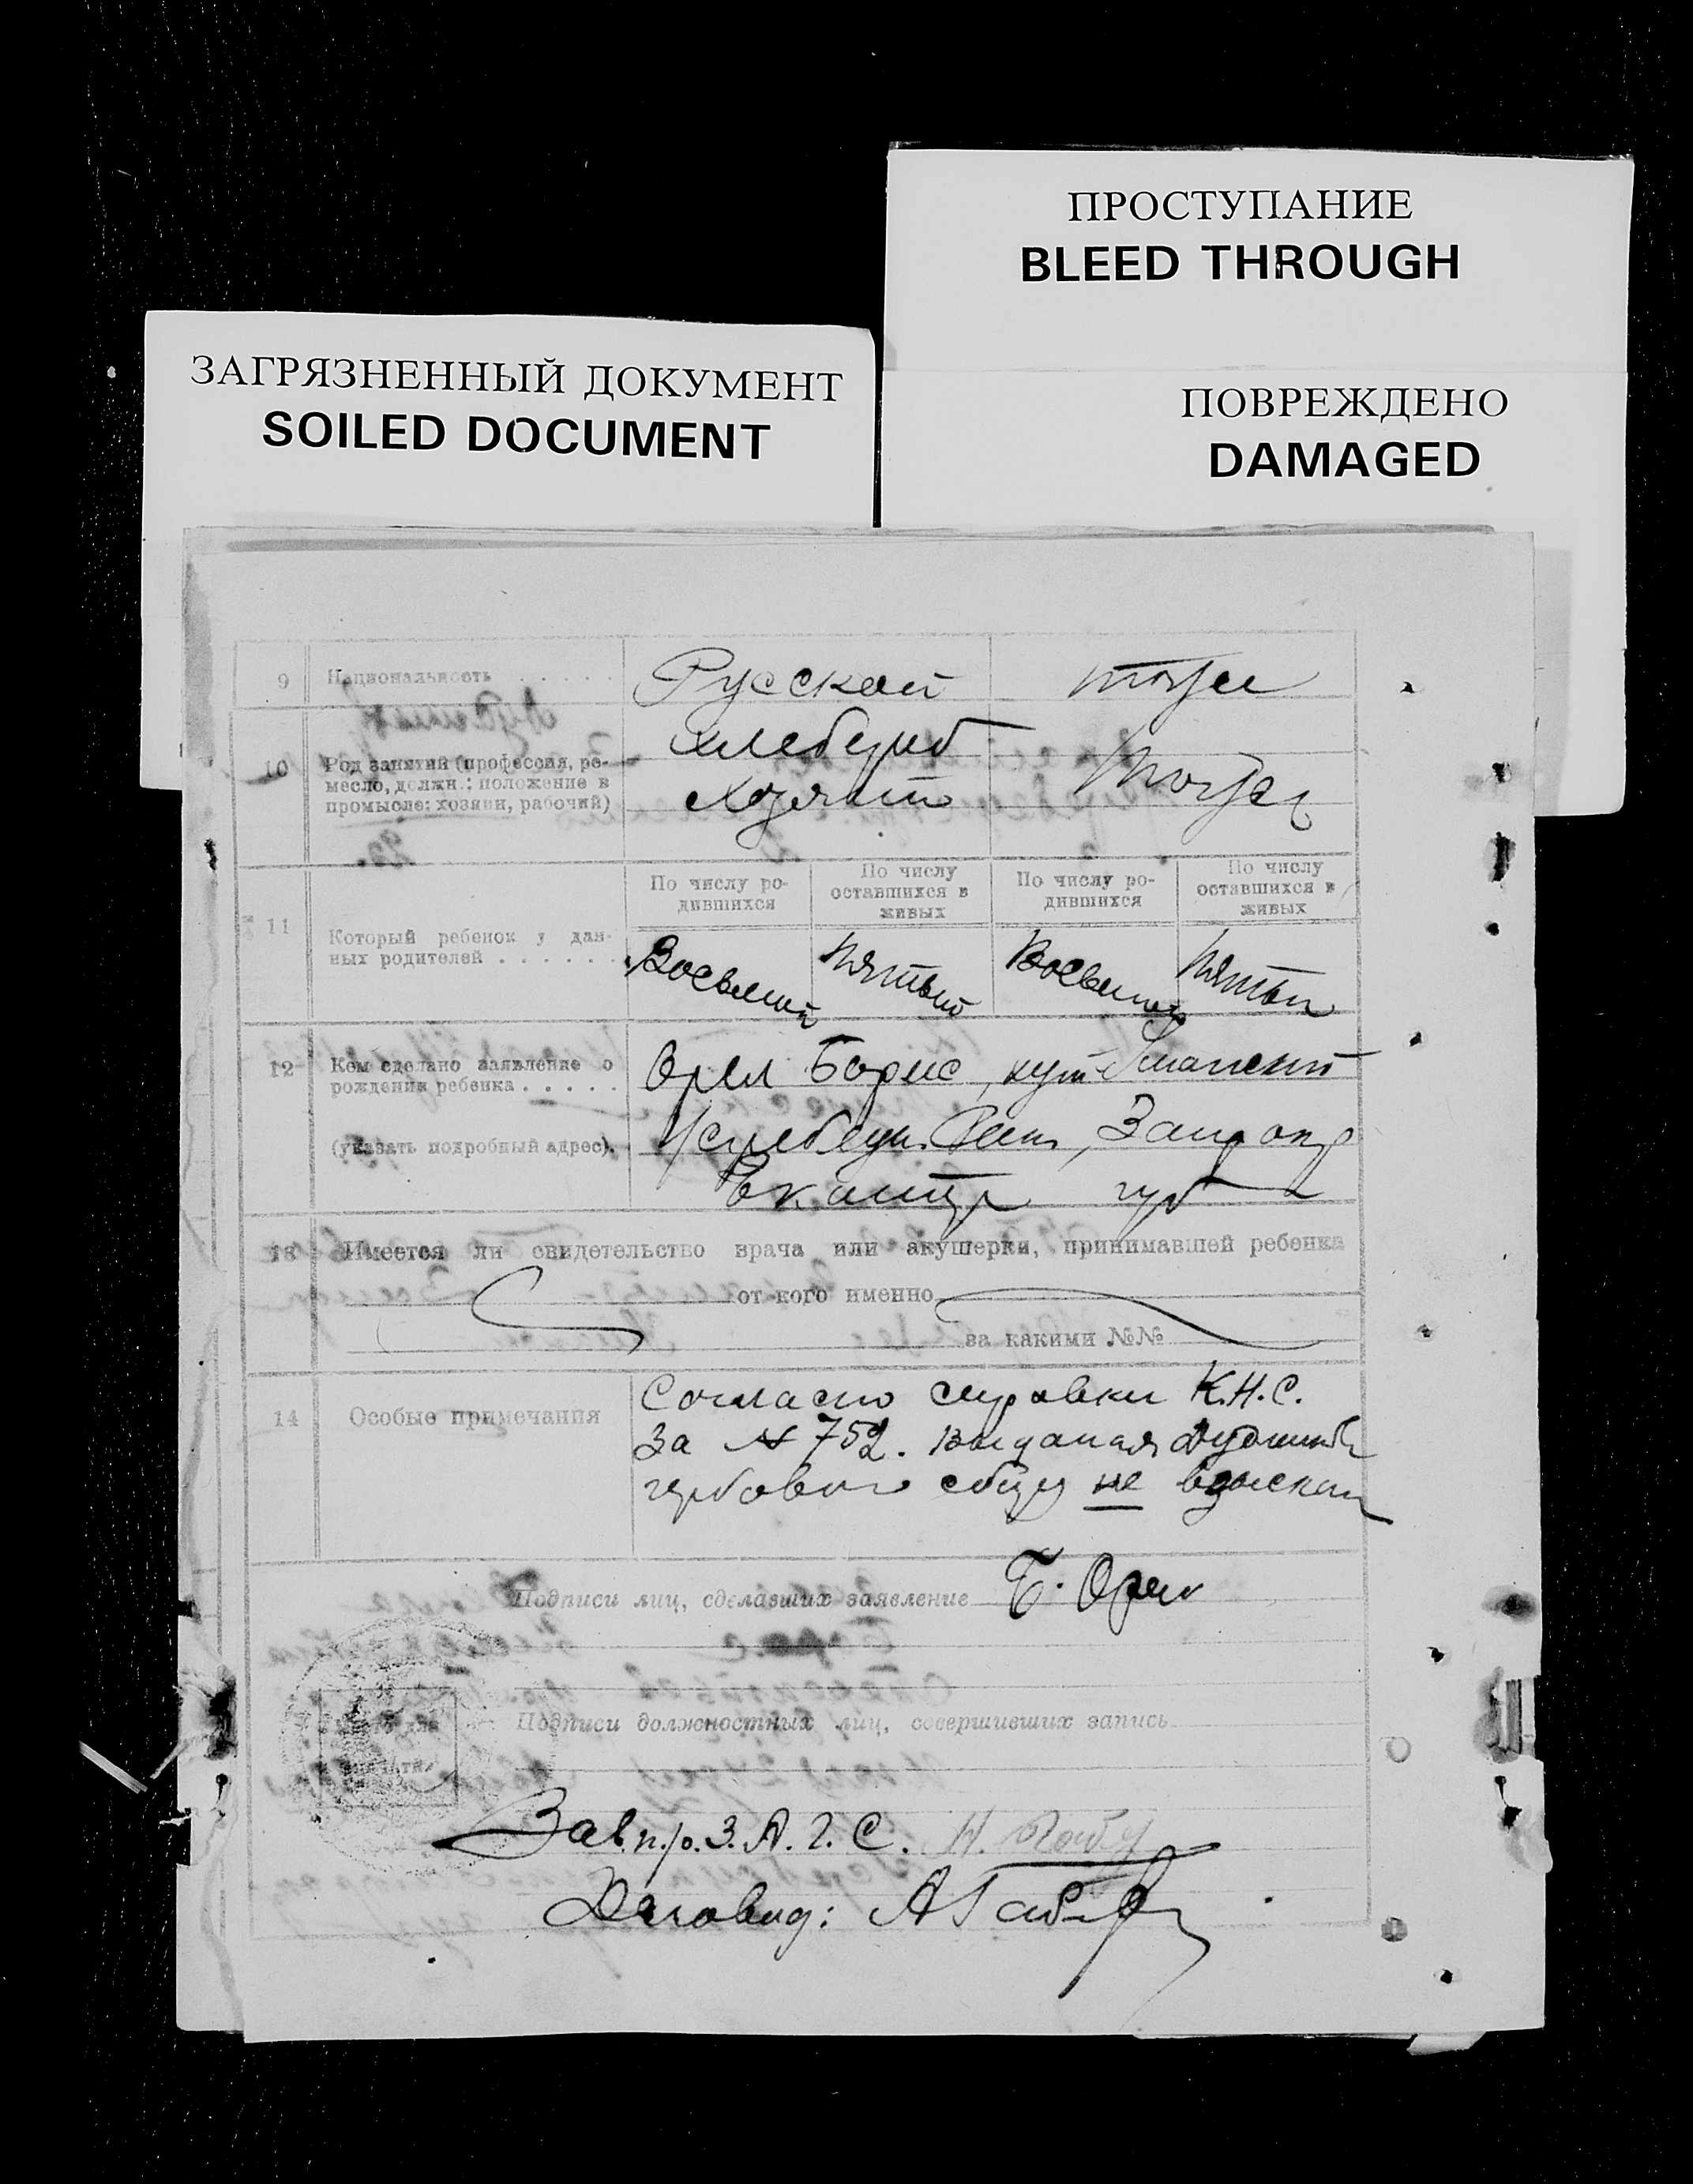 ПРОСТУПАНИЕ
BLEED THROUGH
ЗАГРЯЗНЕННЫЙ ДОКУМЕНТ
SOILED DOCUMENT
ПОВРЕЖДЕНО
DAMAGED
9 Национальность . . . . . Русской тоже
10 Род занятий (профессия, ре-
месло, должн.: положение в
промысле: хозяин, рабочий)
Хлебороб
тоже
11 Который ребенок у дан-
ных родителей . . . . . .
По числу ро-
дившихся
По числу
оставшихся в
живых
По числу ро-
дившихся
По числу
оставшихся в
живых
Восьмой Пятый Восьмой Пятый
12 Кем сделано заявление о
рождении ребенка . . . . .
(указать подробный адрес).
Орел Борис, хут.
Запор окр
Екатер губ
13 Имеется ли свидетельство врача или акушерки, принимавшей ребенка
от кого именно
за какими №№
14 Особые примечания
Согласно справки К.Н.С.
За № 752. Выданая
гербового сбору не взыскан
Подписи лиц, сделавших заявление Б. Орел
Подписи должностных лиц, совершивших запись
Зав. п/о. З. А. Г. С.
Деловод: